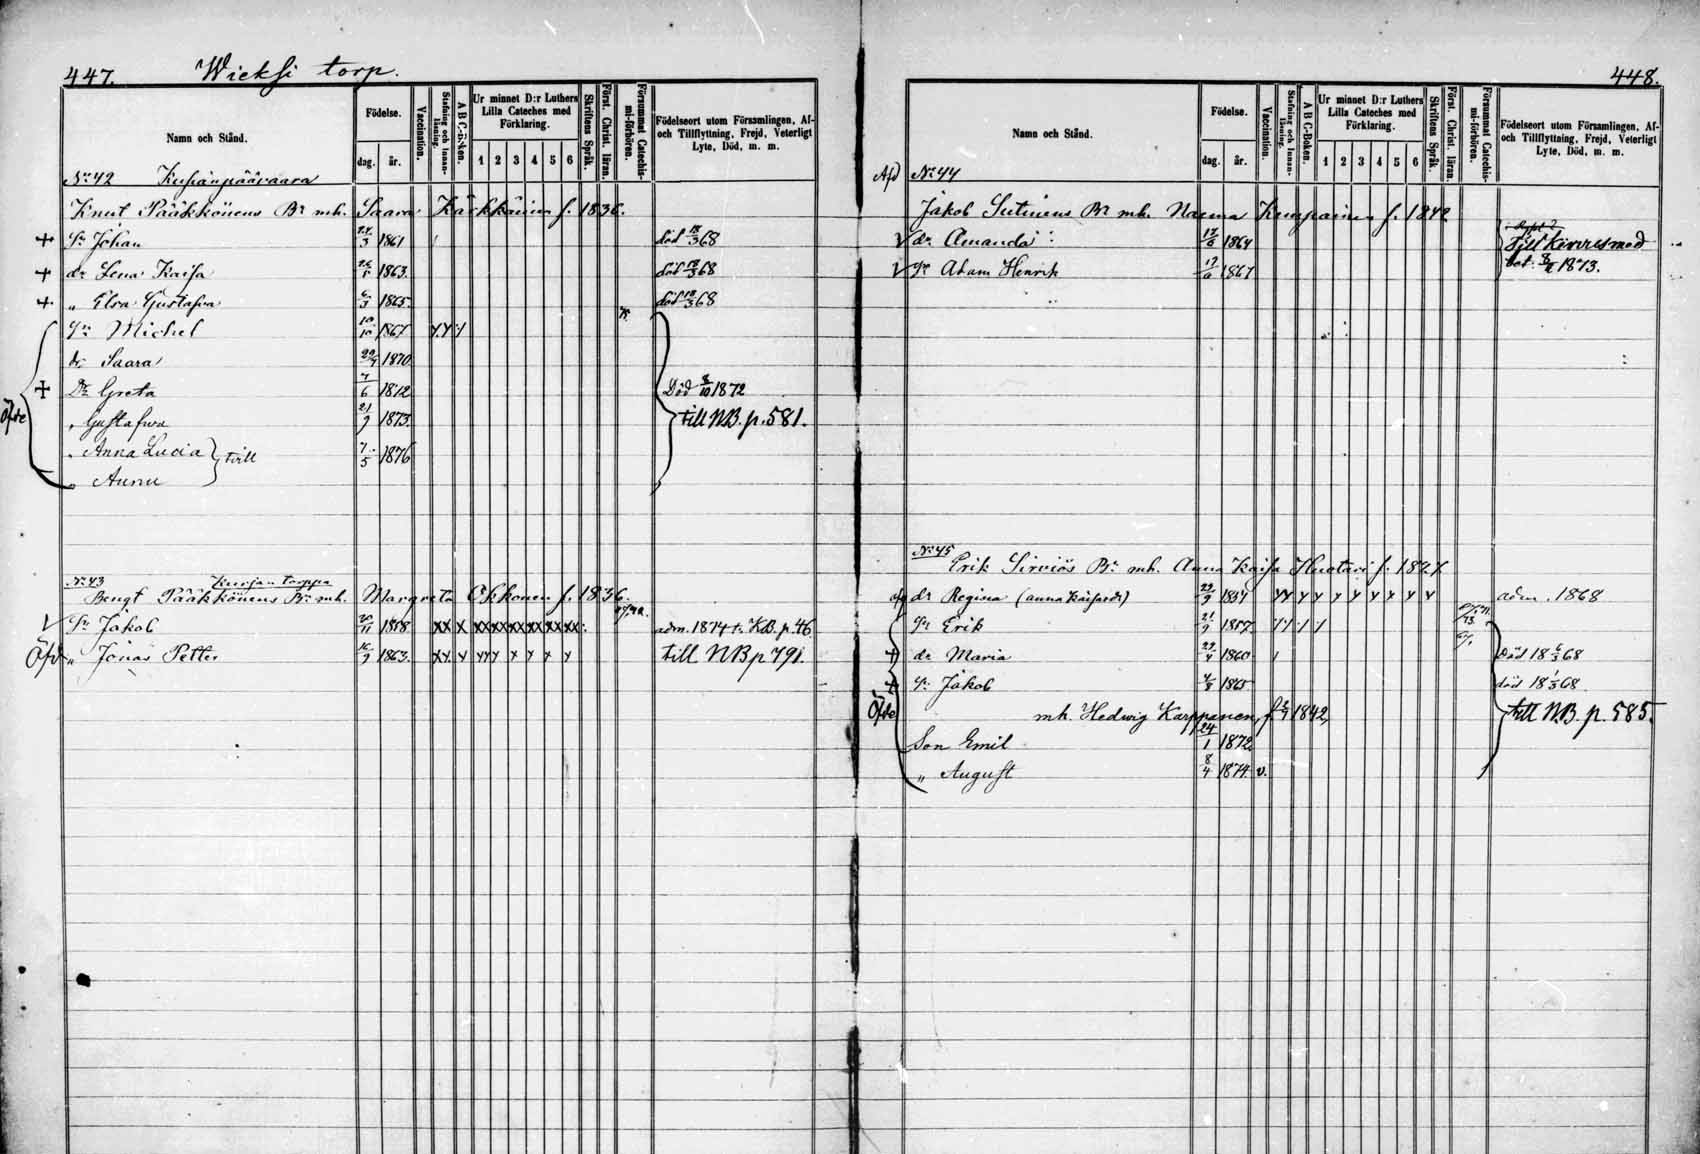 447. Wieksi torp.
Namn och Stånd.
Födelse.
dag. år.
Vaccination.
Stafning och Innanläsning.
A B C-Boken.
Ur minnet D:r Luthers Lilla Cateches med Förklaring.
1 2 3 4 5 6
Skriftens Språk.
Först. Christ. läran.
Försummat Catechismi-förhören.
Födelseort utom Församlingen, Af- och Tillflyttning, Frejd, Veterligt Lyte, Död, m. m.
No 42
Knut Pääkkönens Br mh. Saara Käkkäinen f. 1836.
+ Sn Johan 24/3 1861 död 18/3 68
+ dr Lena Kaisa 1863. död 18/3 68
+ „ Elsa Gustafva 6/3 1865. död 18/3 68
Sn Michel 1867
dr Saara 1870
+ Dr Greta 7/6 1872 Död 8/10 1872
Öfde „ Gustafva 21/9 1873. till NB. p. 581.
„ Anna Lucia } tvill 7/5 1876
„ Annu
No 43 Kurjan torppa
Bengt Pääkkönens Br mh. Margreta Okkonen f. 1836.
V Sn Jakob 1858 XX X XX XX XX XX XX XX adm. 1874 t. KB. p. 46
Öfd „ Jonas Petter 16/9 1863. till NB p 791.
448.
Namn och Stånd.
Födelse.
dag. år.
Vaccination.
Stafning och Innanläsning.
A B C-Boken.
Ur minnet D:r Luthers Lilla Cateches med Förklaring.
1 2 3 4 5 6
Skriftens Språk.
Först. Christ. läran.
Försummat Catechismi-förhören.
Födelseort utom Församlingen, Af- och Tillflyttning, Frejd, Veterligt Lyte, Död, m. m.
Afd No 44
Jakob Sutinens Br mh. Naema Kumpainen f. 1842
V dr Amanda 1864 Till
V Sn Adam Henrik 17/6 1867 bet. 1873.
No 45
Erik Sirviös Br mh. Anna Kaisa Huotari f. 1827.
dr Regina 1854 adm. 1868
Sn Erik 21/9 1857
+ dr Maria 1860 Död 18 6/3 68
+ Sn Jakob 4/8 1865 död 18 1/3 68
Öfde mh. Hedwig Karppanen f. 1842 till NB. p. 585.
Son Emil 24/1 1872
„ August 8/4 1874 v.